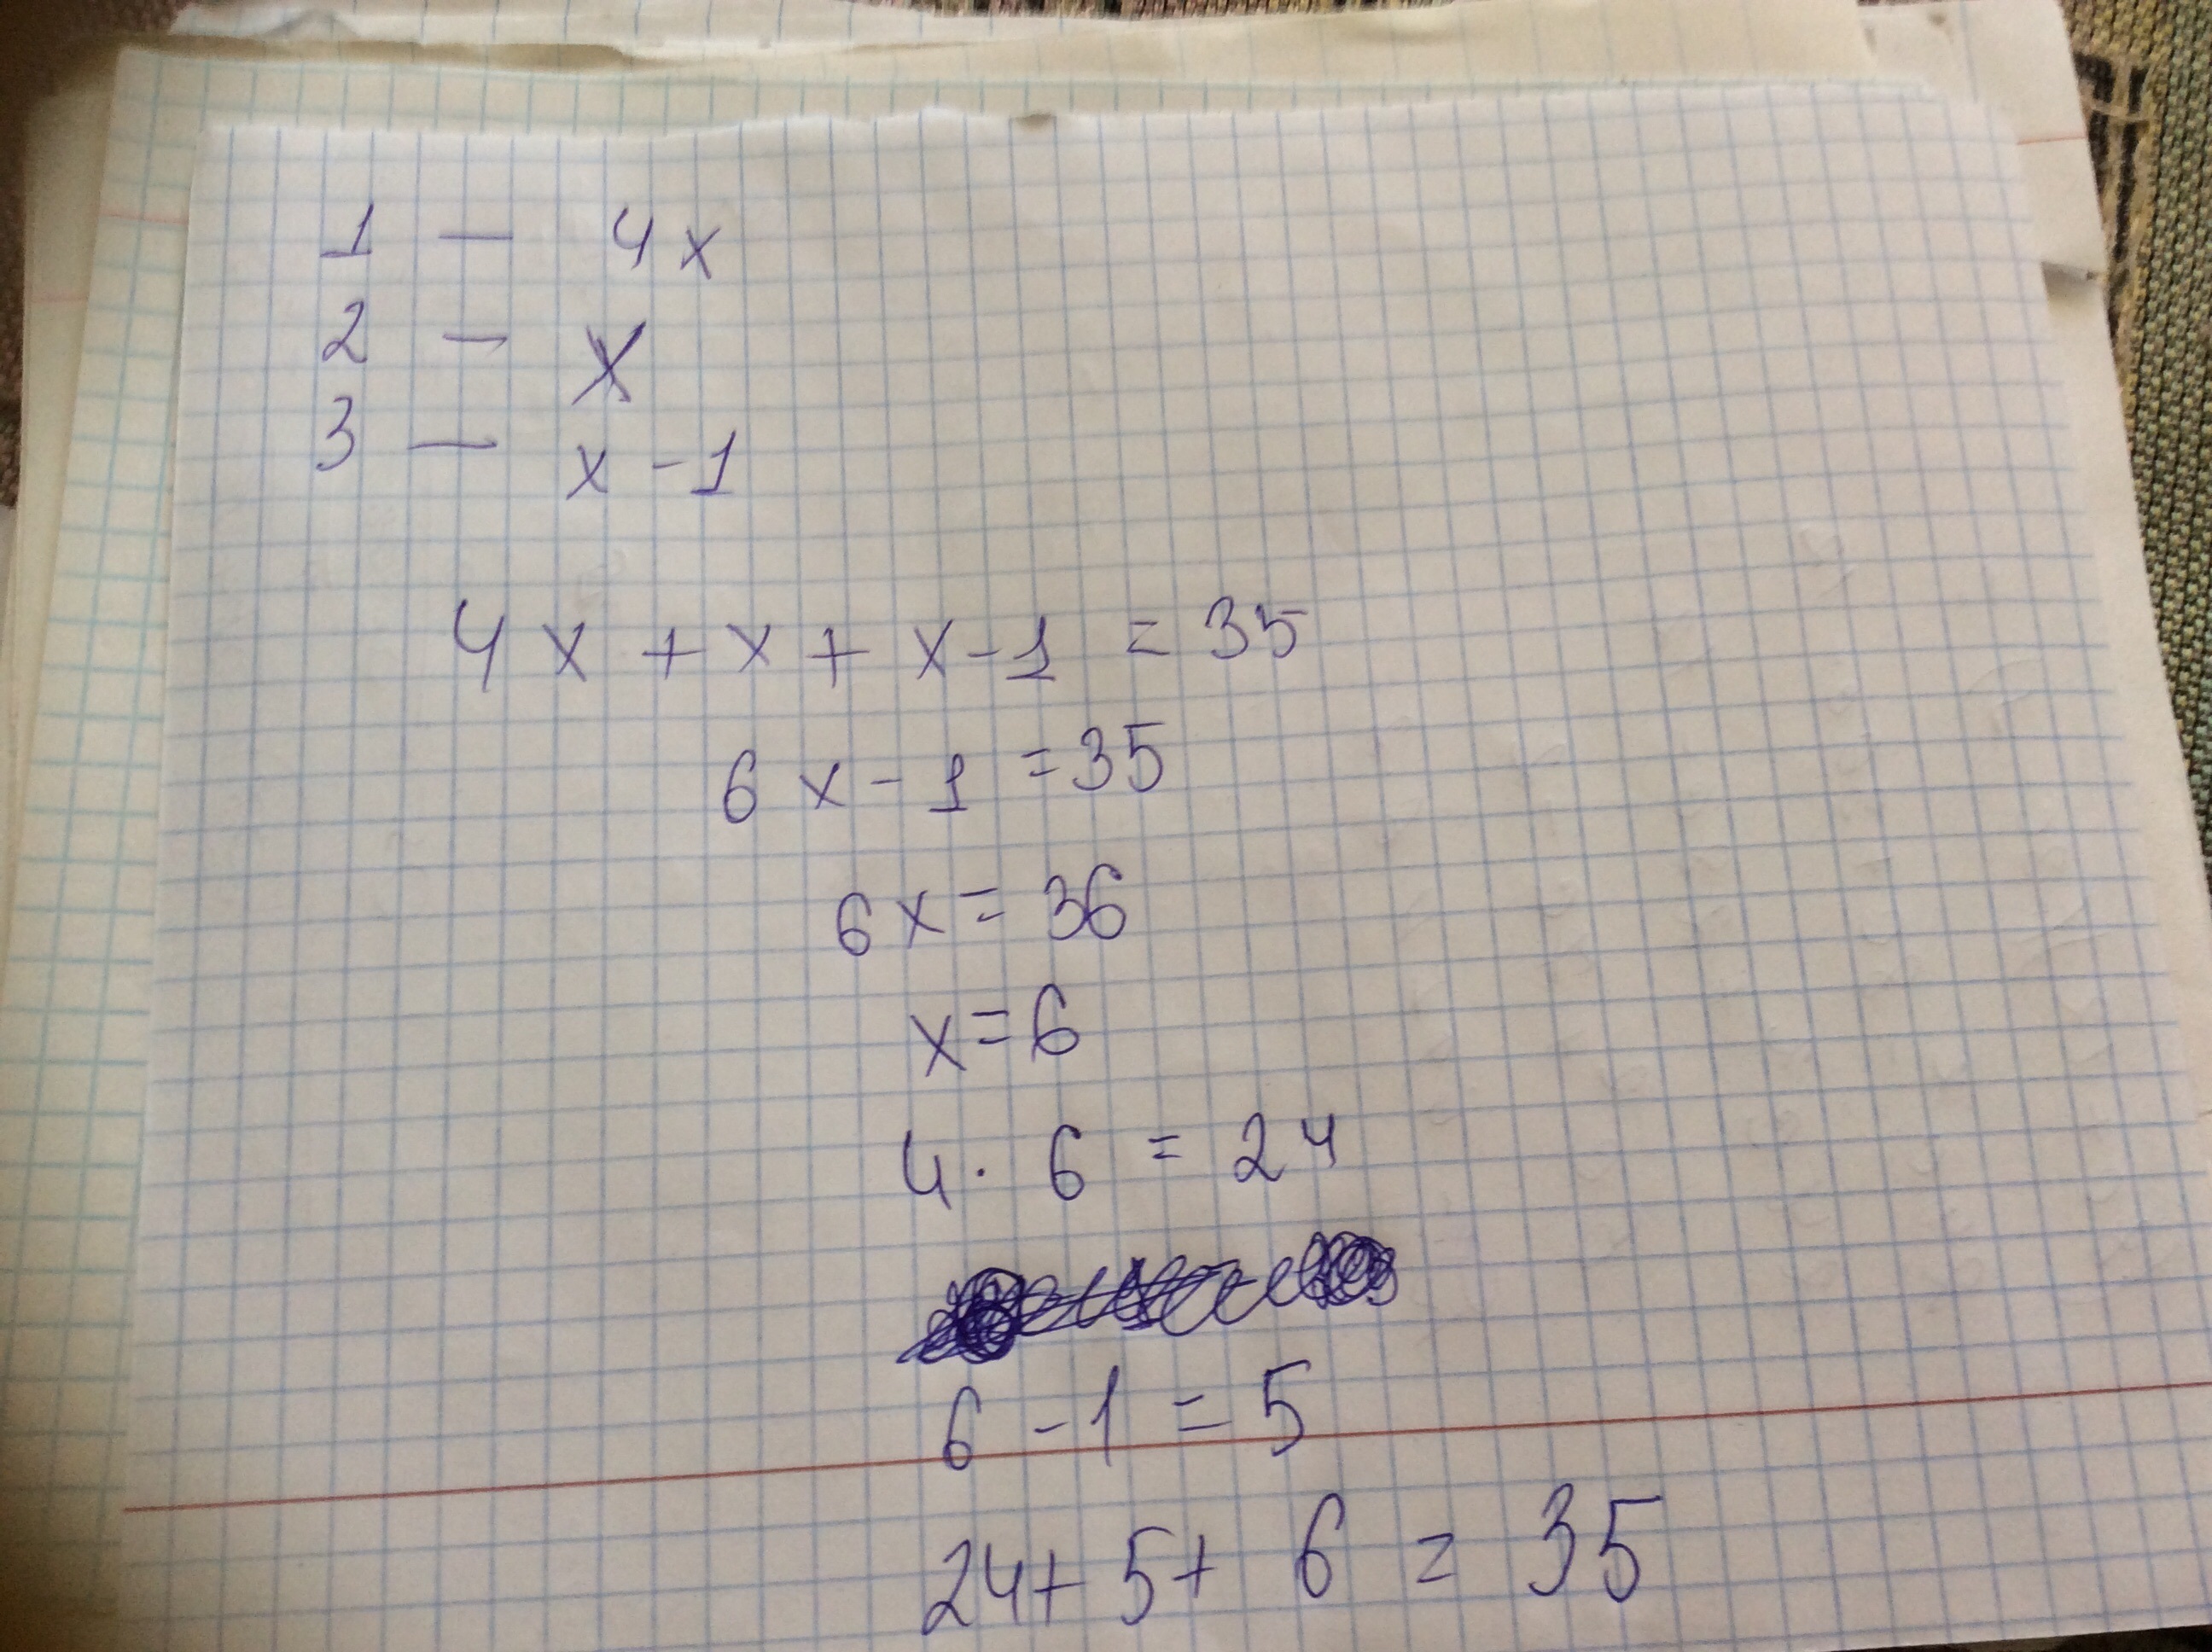 1 — 4x
2 — x
3 — x - 1
4x + x + x - 1 = 35
6x - 1 = 35
6x = 36
x = 6
4 · 6 = 24
6 - 1 = 5
24 + 5 + 6 = 35